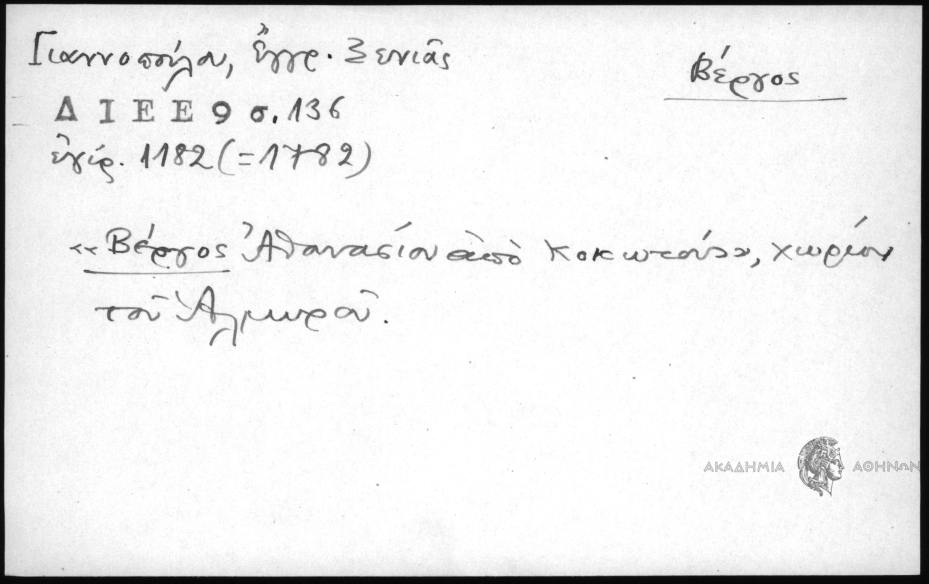 Γιαννοπούλου, Ἐγγρ. Ξενιᾶς
Βέργος
Δ Ι Ε Ε 9 σ. 136
ἐγίρ. 1182 (=1782)
«Βέργος Ἀθανασίου ἀπὸ Κοκωτούς», χωρίον
τοῦ Ἁλμυροῦ.
ΑΚΑΔΗΜΙΑ ΑΘΗΝΩΝ